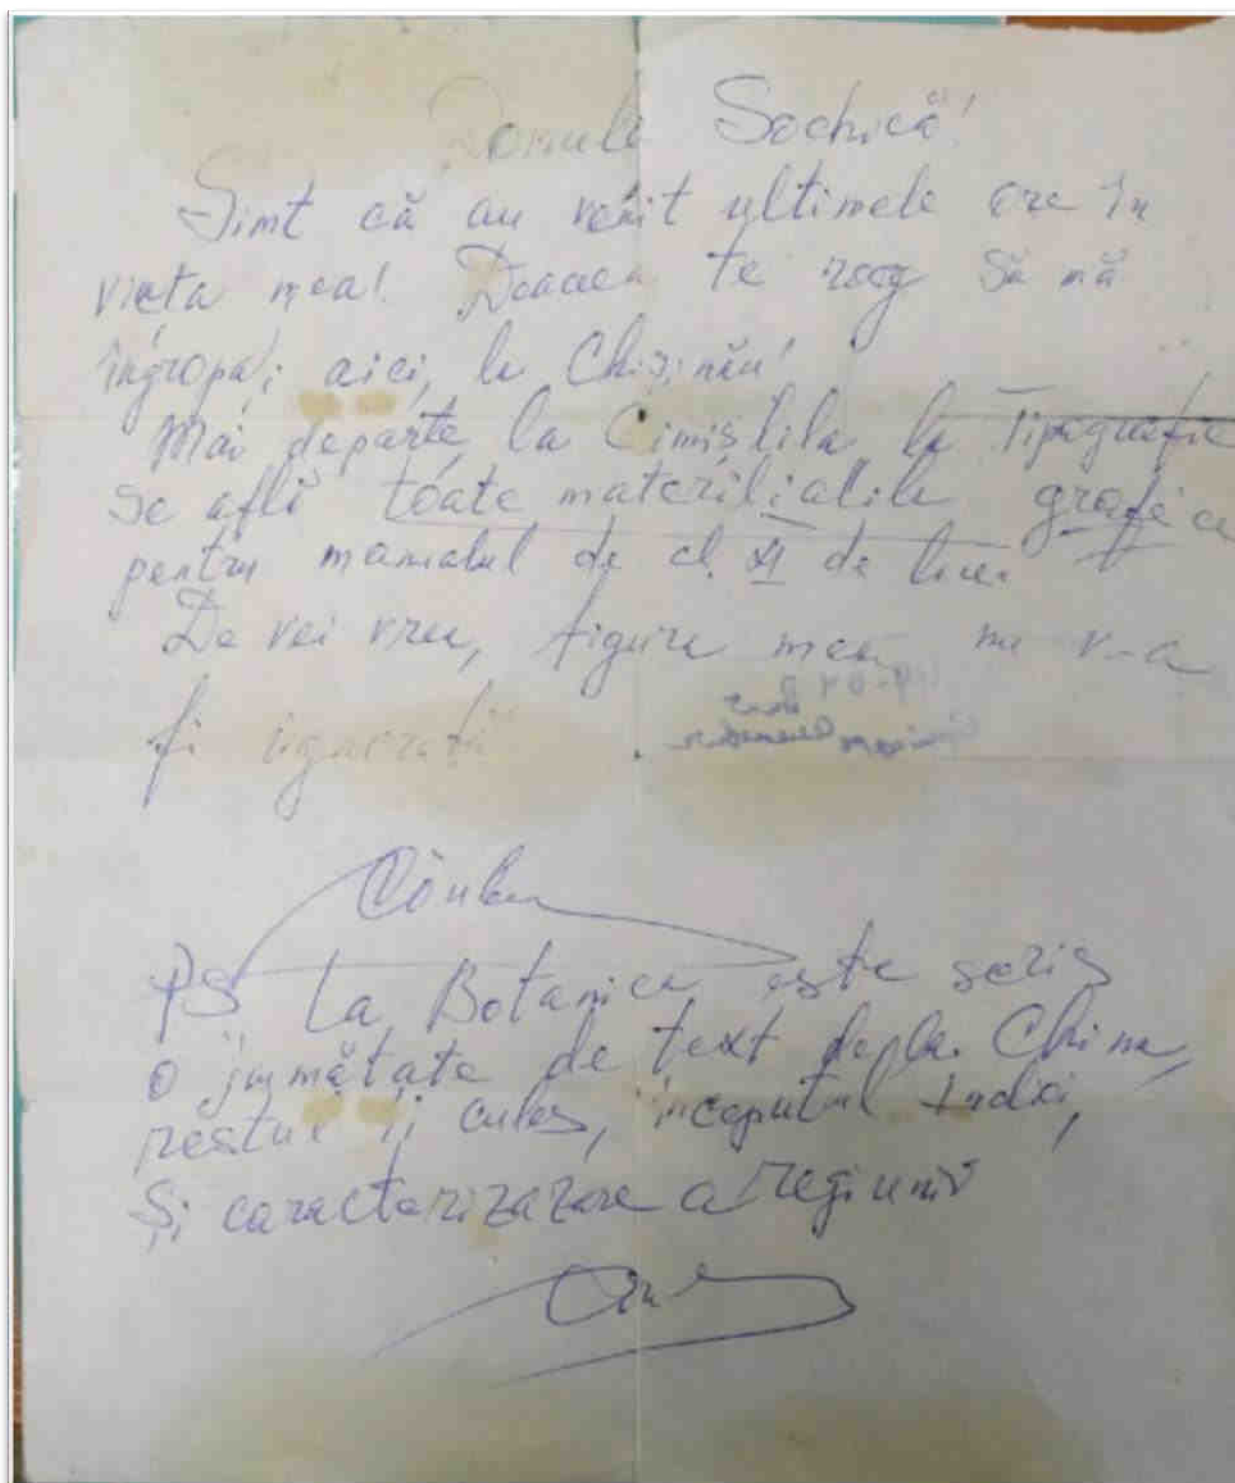 Domule Sochică!
Simt că au venit ultimele ore în
viața mea! Deaceea te rog să mă
îngropați aici, la Chișinău!
Mai departe, la Cimișlila la Tipografie
se aflî toate materilialile grafice
pentru manualul de cl. XI de liceu
De vei vrea, figura mea nu v-a
fi ignorată
PS La Botanica este scris
o jumătate de text depla China,
restul îi cules, începutul Indiei,
Și caracterizazare a regiunii